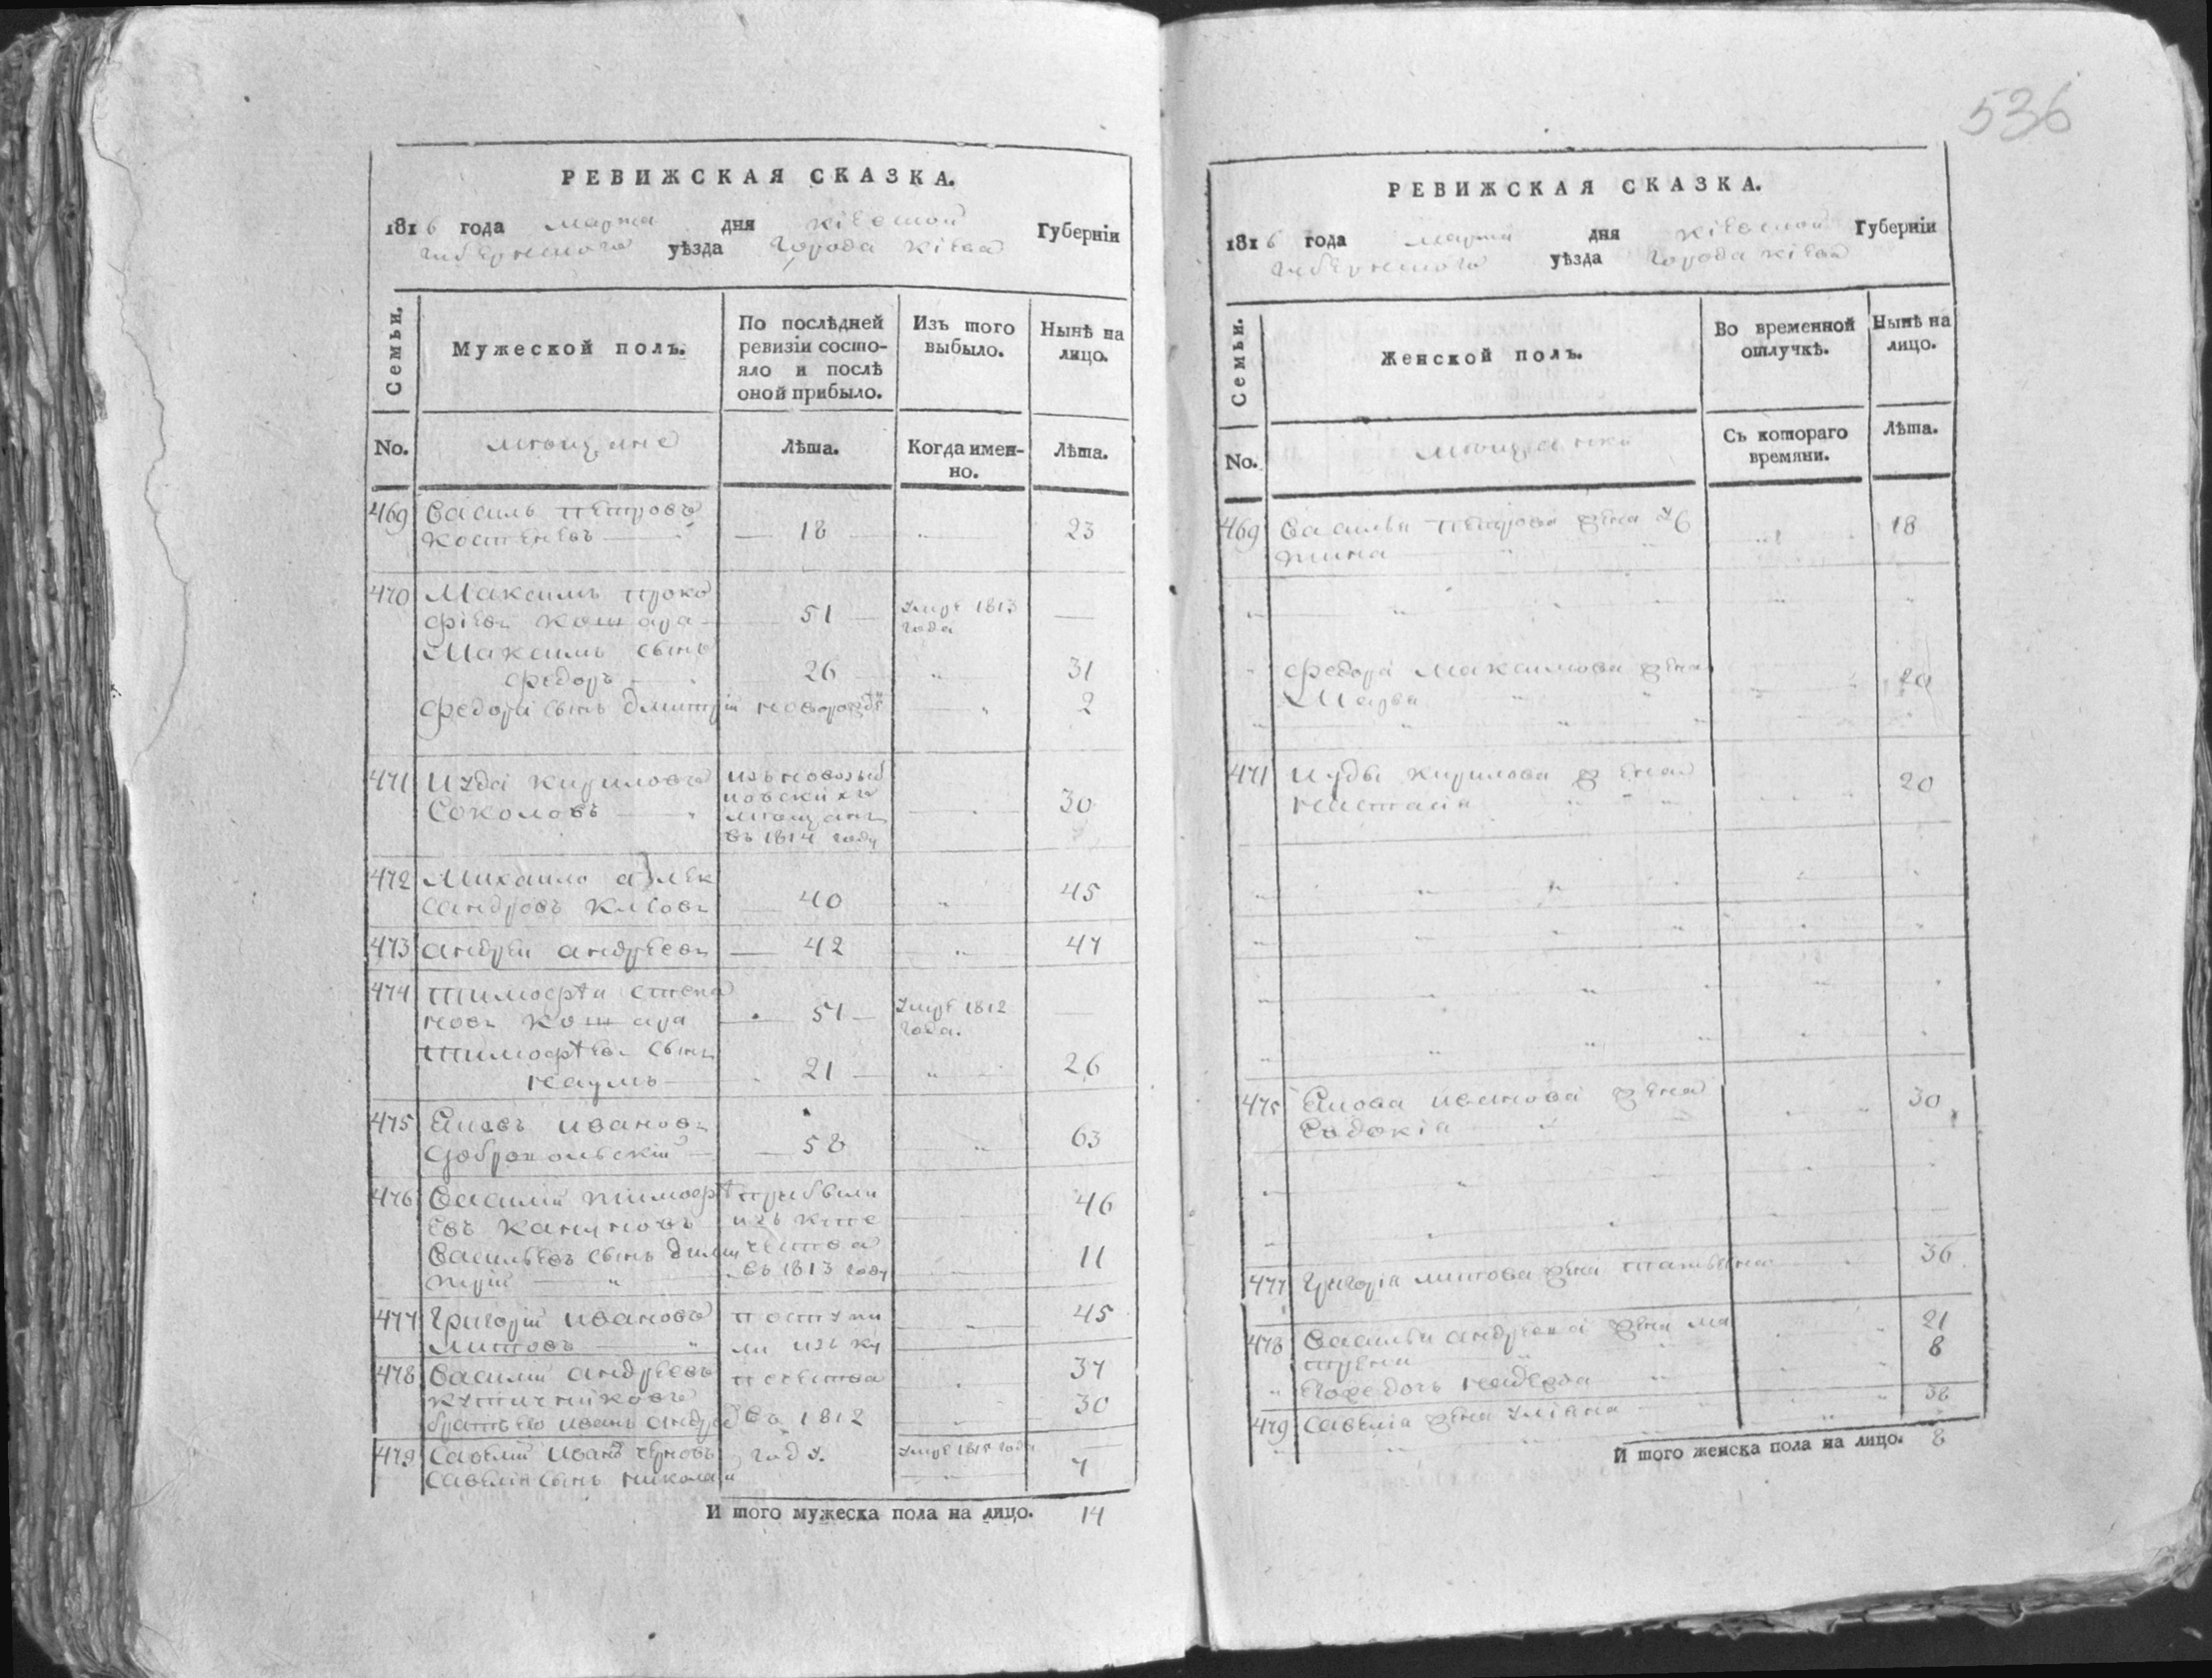 536
РЕВИЖСКАЯ СКАЗКА.
1816 года марта дня кіевской Губерніи
губернского уѣзда города кіева
Семьи. Мужеской полъ. По послѣдней ревизіи состояло и послѣ оной прибыло. Изъ того выбыло. Нынѣ на лицо.
No. мѣщане Лѣта. Когда именно. Лѣта.
469 Василь петровъ
костеневъ — 18 — 23
470 Максимъ проко
фіевъ кошара — 51 — умре 1813 года —
Максимъ сынъ
федоръ — 26 — 31
федора сынъ дмитрій новорожд 2
471 Иуда кириловъ
Соколовъ — изъ
мѣщанъ
въ 1814 году 30
472 Михаило алек
сандровъ — 40 45
473 андрей андреевъ — 42 47
474 тимофѣй степа
новъ кошара — 57 — умре 1812 года. —
тимофѣевъ сынъ
наумъ — 21 — 26
475 Яковъ ивановъ
добропольскій — 58 63
476 Василій тимофѣ прибыли
евъ изъ купе 46
Васильевъ сынъ дими чества
трій — въ 1813 году 11
477 Григорій ивановъ поступи 45
литовъ ли изъ ку
478 Василій андреевъ печества 37
братъ его иванъ андре въ 1812 30
479 Савелій иванъ черновъ году. умре 1815 года —
Савелія сынъ николай 7
И того мужеска пола на лицо. 14
РЕВИЖСКАЯ СКАЗКА.
1816 года марта дня кіевской Губерніи
губернского уѣзда города кіева
Семьи. Женской полъ. Во временной отлучкѣ. Нынѣ на лицо.
No. мѣщанки Съ котораго времяни. Лѣта.
469 Василья петрова жена
18
федора максимова жена
Марва 29
471 Иуды кирилова жена
настасія 20
475 Якова иванова жена
Евдокія 30
477 Григорія литова жена татьяна 36
478 Василья андреева жена ма 21
трена 8
Надежда
479 Савелія жена уліяна 38
И того женска пола на лицо. 8